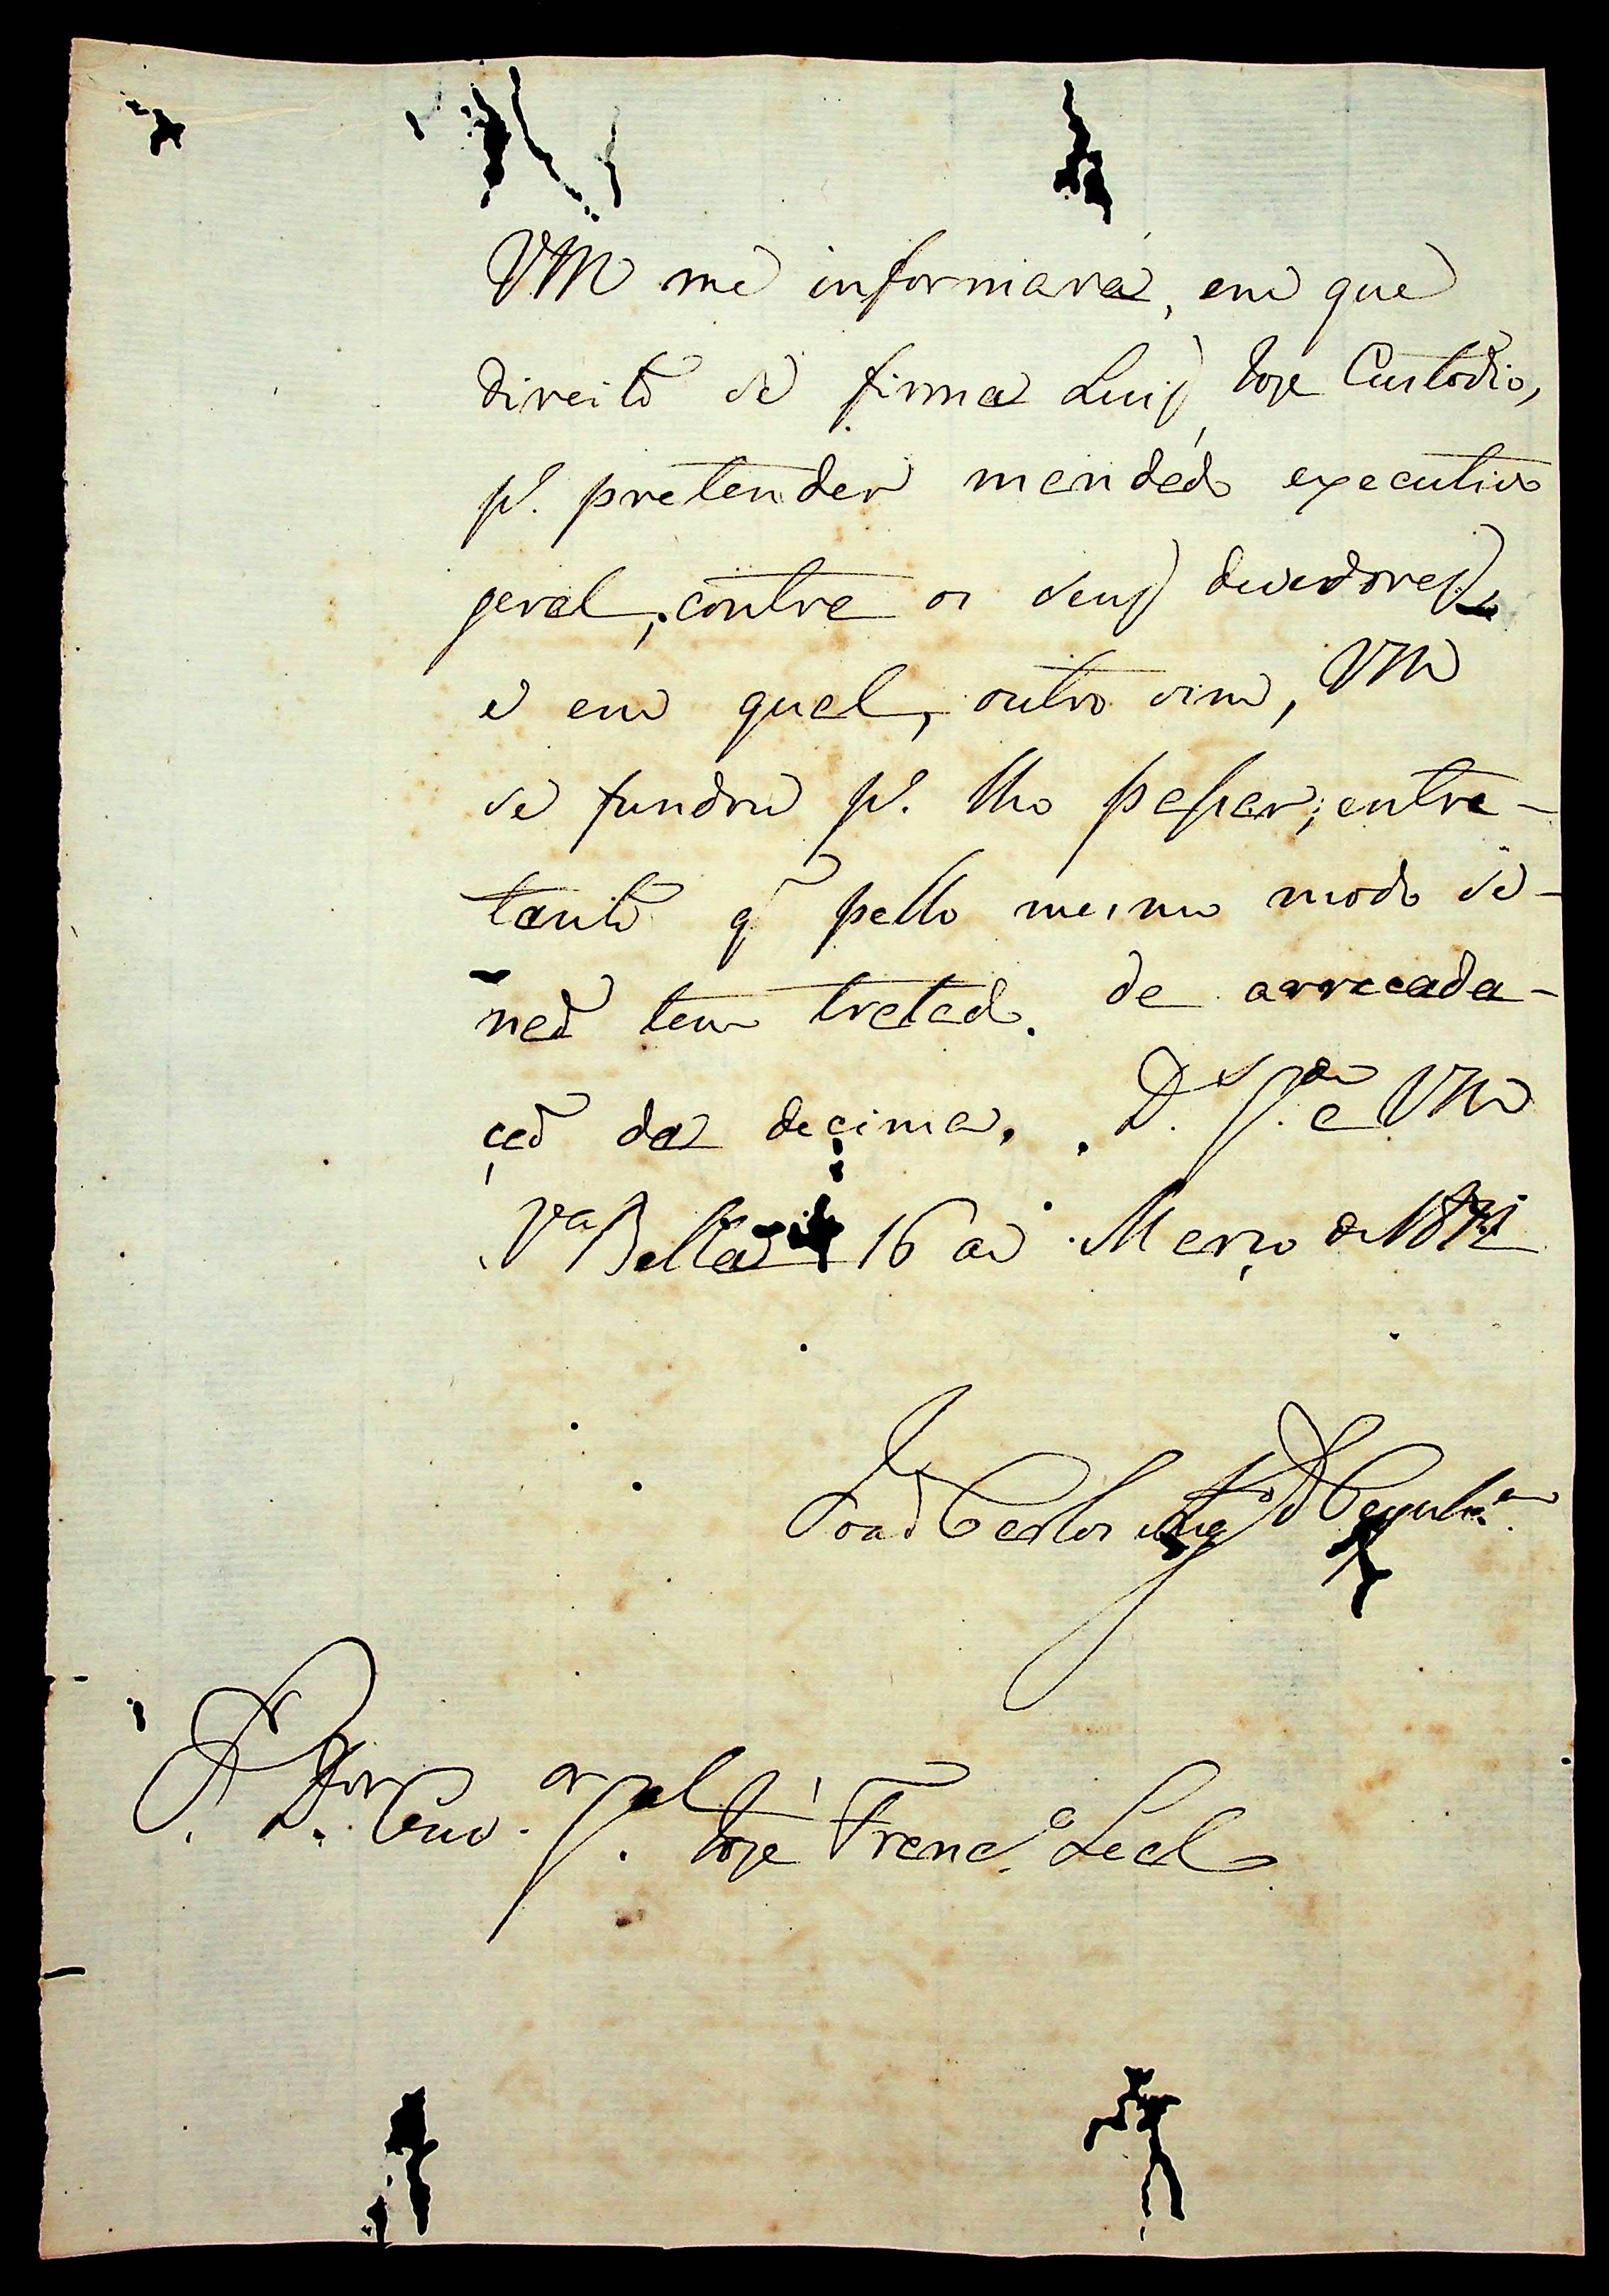 VM me informará, em que
direito se firma Luis Joze Custodio,
pª. pretender mandado executivo
geral, contra os seus devedores,
e em qual, outro sim, VM
se fundou pª. lho passar; entre-
tanto q̃ pello mesmo modo se-
naõ tem tratado de arrecada-
çaõ da decima. Ds. Gde. a VM
Va Bella 16 de Março de
Joaõ Carlos Augto d'Oeynhen.
Sr. Dor. Ouvor. Gal. Joze Francº. Leal